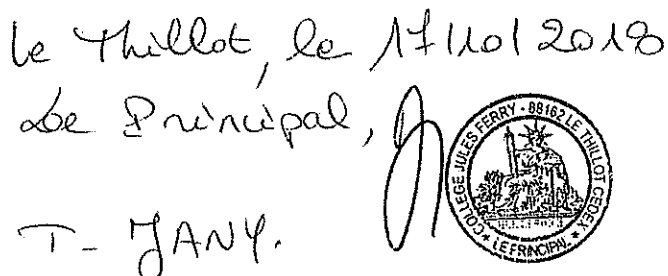 Le Thillot, le 17/10/2018
Le Principal,
COLLEGE JULES FERRY - 88162 LE THILLOT CEDEX
* LE PRINCIPAL *
T- JANY.